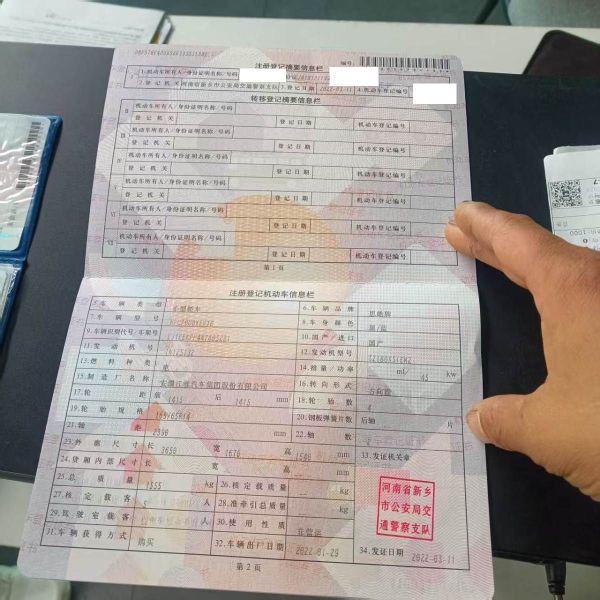 注册登记摘要信息栏 编号:
1.机动车所有人/身份证明名称/号码
2.登记机关 河南省新乡市公安局交通警察支队 3.登记日期 2022-03-11 4.机动车登记编号
转移登记摘要信息栏
Ⅱ 机动车所有人/身份证明名称/号码
登记机关 登记日期 机动车登记编号
Ⅲ 机动车所有人/身份证明名称/号码
登记机关 登记日期 机动车登记编号
Ⅳ 机动车所有人/身份证明名称/号码
登记机关 登记日期 机动车登记编号
Ⅴ 机动车所有人/身份证明名称/号码
登记机关 登记日期 机动车登记编号
Ⅵ 机动车所有人/身份证明名称/号码
登记机关 登记日期 机动车登记编号
Ⅶ 机动车所有人/身份证明名称/号码
登记机关 登记日期 机动车登记编号
第1页
注册登记机动车信息栏
5.车辆类型 小型轿车 6.车辆品牌 思皓牌
7.车辆型号 8.车身颜色
9.车辆识别代号/车架号 10.国产/进口 国产
11.发动机号 12.发动机型号
13.燃料种类 电 14.排量/功率 ml/ 45 kw
15.制造厂名称 安徽江淮汽车集团股份有限公司 16.转向形式 方向盘
17.轮距 前 1415 后 1415 mm 18.轮胎数 4
19.轮胎规格 165/65R14 20.钢板弹簧片数 后轴 片
21.轴距 2390 mm 22.轴数 2
23.外廓尺寸 长 3650 宽 1670 高 1540 mm 33.发证机关章
24.货厢内部尺寸 长 宽 高 mm
25.总质量 kg 26.核定载质量 kg
27.核定载客 人 28.准牵引总质量 kg
29.驾驶室载客 人 30.使用性质 非营运
31.车辆获得方式 购买 32.车辆出厂日期 2022-01-29 34.发证日期 2022-03-11
河南省新乡
市公安局交
通警察支队
第2页